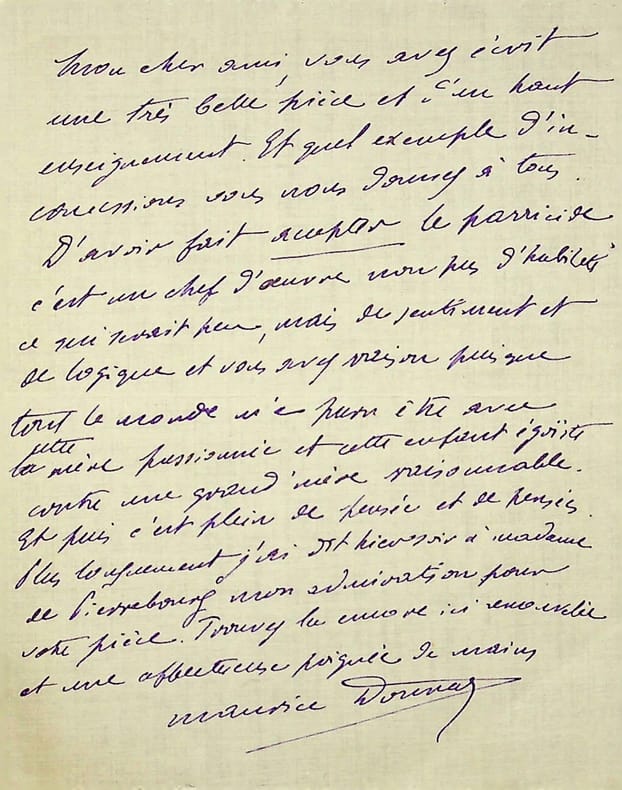 Mon cher ami, vous avez écrit
une très belle pièce et d'un haut
enseignement. Et quel exemple d'in-
concessions vous nous donnez à tous.
D'avoir fait accepter le parricide
c'est un chef d'œuvre non pas d'habileté
ce qui serait peu, mais de sentiment et
de logique et vous avez raison puisque
tout le monde m'a paru être avec
cette
la mère passionnée et cette enfant égoïste
contre une grand'mère raisonnable.
Et puis c'est plein de pensée et de pensées.
Plus longuement j'ai dit hier soir à madame
de Pierrebourg mon admiration pour
votre pièce. Trouvez la encore ici renouvelée
et une affectueuse poignée de mains
Maurice Donnay